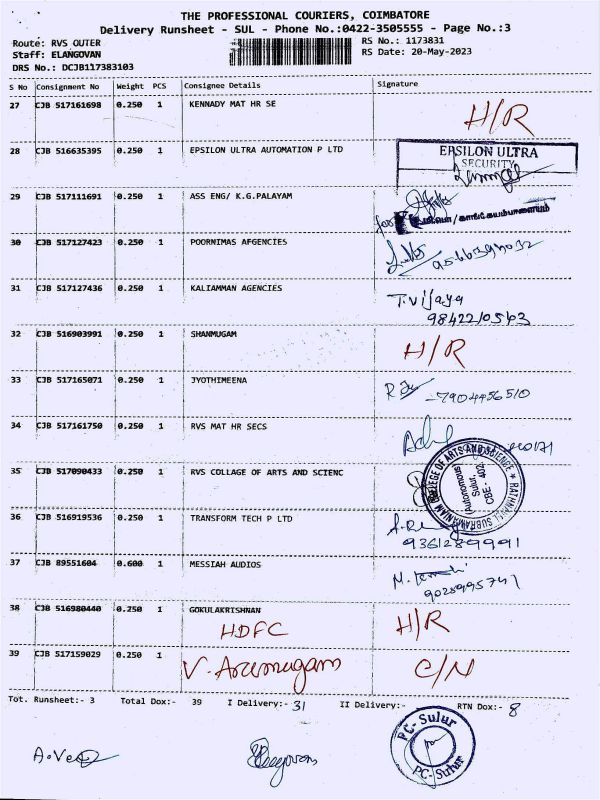 THE PROFESSIONAL COURIERS, COIMBATORE
Delivery Runsheet - SUL - Phone No.:0422-3505555 - Page No.:3
Route: RVS OUTER
RS No.: 1173831
Staff: ELANGOVAN
RS Date: 20-May-2023
DRS No.: DCJB117383103
S No Consignment No Weight PCS Consignee Details Signature
27 CJB 517161698 0.250 1 KENNADY MAT HR SE H/R
28 CJB 516635395 0.250 1 EPSILON ULTRA AUTOMATION P LTD
EPSILON ULTRA
SECURITY
29 CJB 517111691 0.250 1 ASS ENG/ K.G.PALAYAM
for
30 CJB 517127423 0.250 1 POORNIMAS AFGENCIES
31 CJB 517127436 0.250 1 KALIAMMAN AGENCIES T.vijaya
9842210543
32 CJB 516903991 0.250 1 SHANMUGAM H/R
33 CJB 517165071 0.250 1 JYOTHIMEENA
7904456510
34 CJB 517161750 0.250 1 RVS MAT HR SECS
35 CJB 517090433 0.250 1 RVS COLLAGE OF ARTS AND SCIENC
RATHNAVEL SUBRAMANIAM COLLEGE OF ARTS AND SCIENCE
(Autonomous)
Sulur,
CBE - 402.
36 CJB 516919536 0.250 1 TRANSFORM TECH P LTD
9361289991
37 CJB 89551604 0.600 1 MESSIAH AUDIOS
9028995741
38 CJB 516980440 0.250 1 GOKULAKRISHNAN H/R
HDFC
39 CJB 517159029 0.250 1 V. Arumugam C/N
Tot. Runsheet:- 3 Total Dox:- 39 I Delivery:- 31 II Delivery:- RTN Dox:- 8
PC-Sulur
PC-Sulur